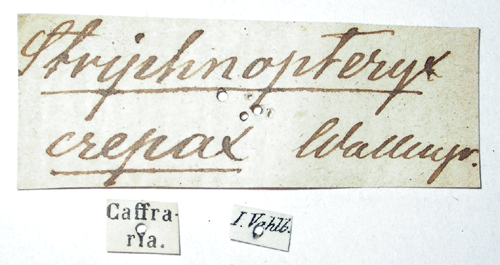 Striphnopteryx
crepax Wallengr.
Caffra-
ria.
J. Vahlb.